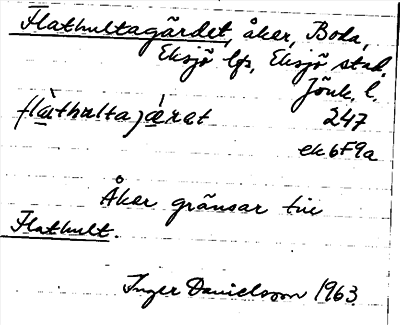 Flathultagärdet, åker, Boda,
Eksjö lfs, Eksjö stad,
Jönk. l.
flàthulta)æ̀ret 247
ek6F9a
Åker gränsar till
Flathult.
Inger Danielsson 1963